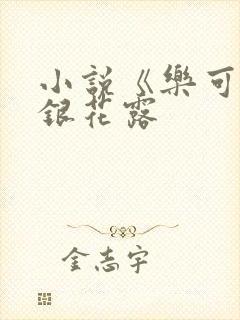 小説《樂可
銀花露
金志宇